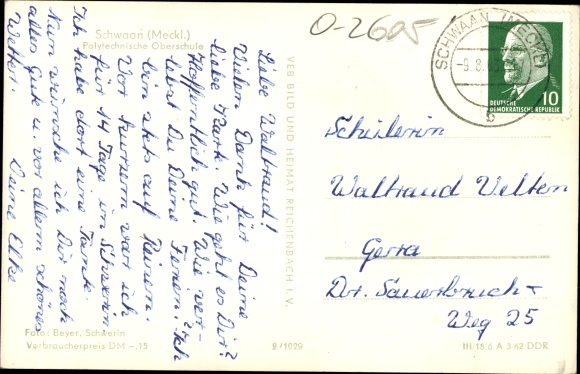 Schwaan (Meckl.)
Polytechnische Oberschule
Liebe Waltraud!
Vielen Dank für Deine
liebe Karte. Wie geht es Dir?
Hoffentlich gut. Wie ver-
lebst Du Deine Ferien? Ich
bin stets auf Reisen.
Vor kurzem war ich
für 14 Tage in Schwerin.
Ich habe dort eine Tante.
Nun wünsche ich Dir noch
alles Gute u. vor allem schönes
Wetter.
Deine Elke
Foto: Beyer, Schwerin
Verbraucherpreis DM -,15
VEB BILD UND HEIMAT REICHENBACH I. V.
9/1029
O-2605
SCHWAAN (MECKL)
-9.8.63
b
DEUTSCHE
DEMOKRATISCHE REPUBLIK
10
Schülerin
Waltraud Velten
Gera
Dr. Sauerbruch-
Weg 25
III/18 6 A 3 62 DDR